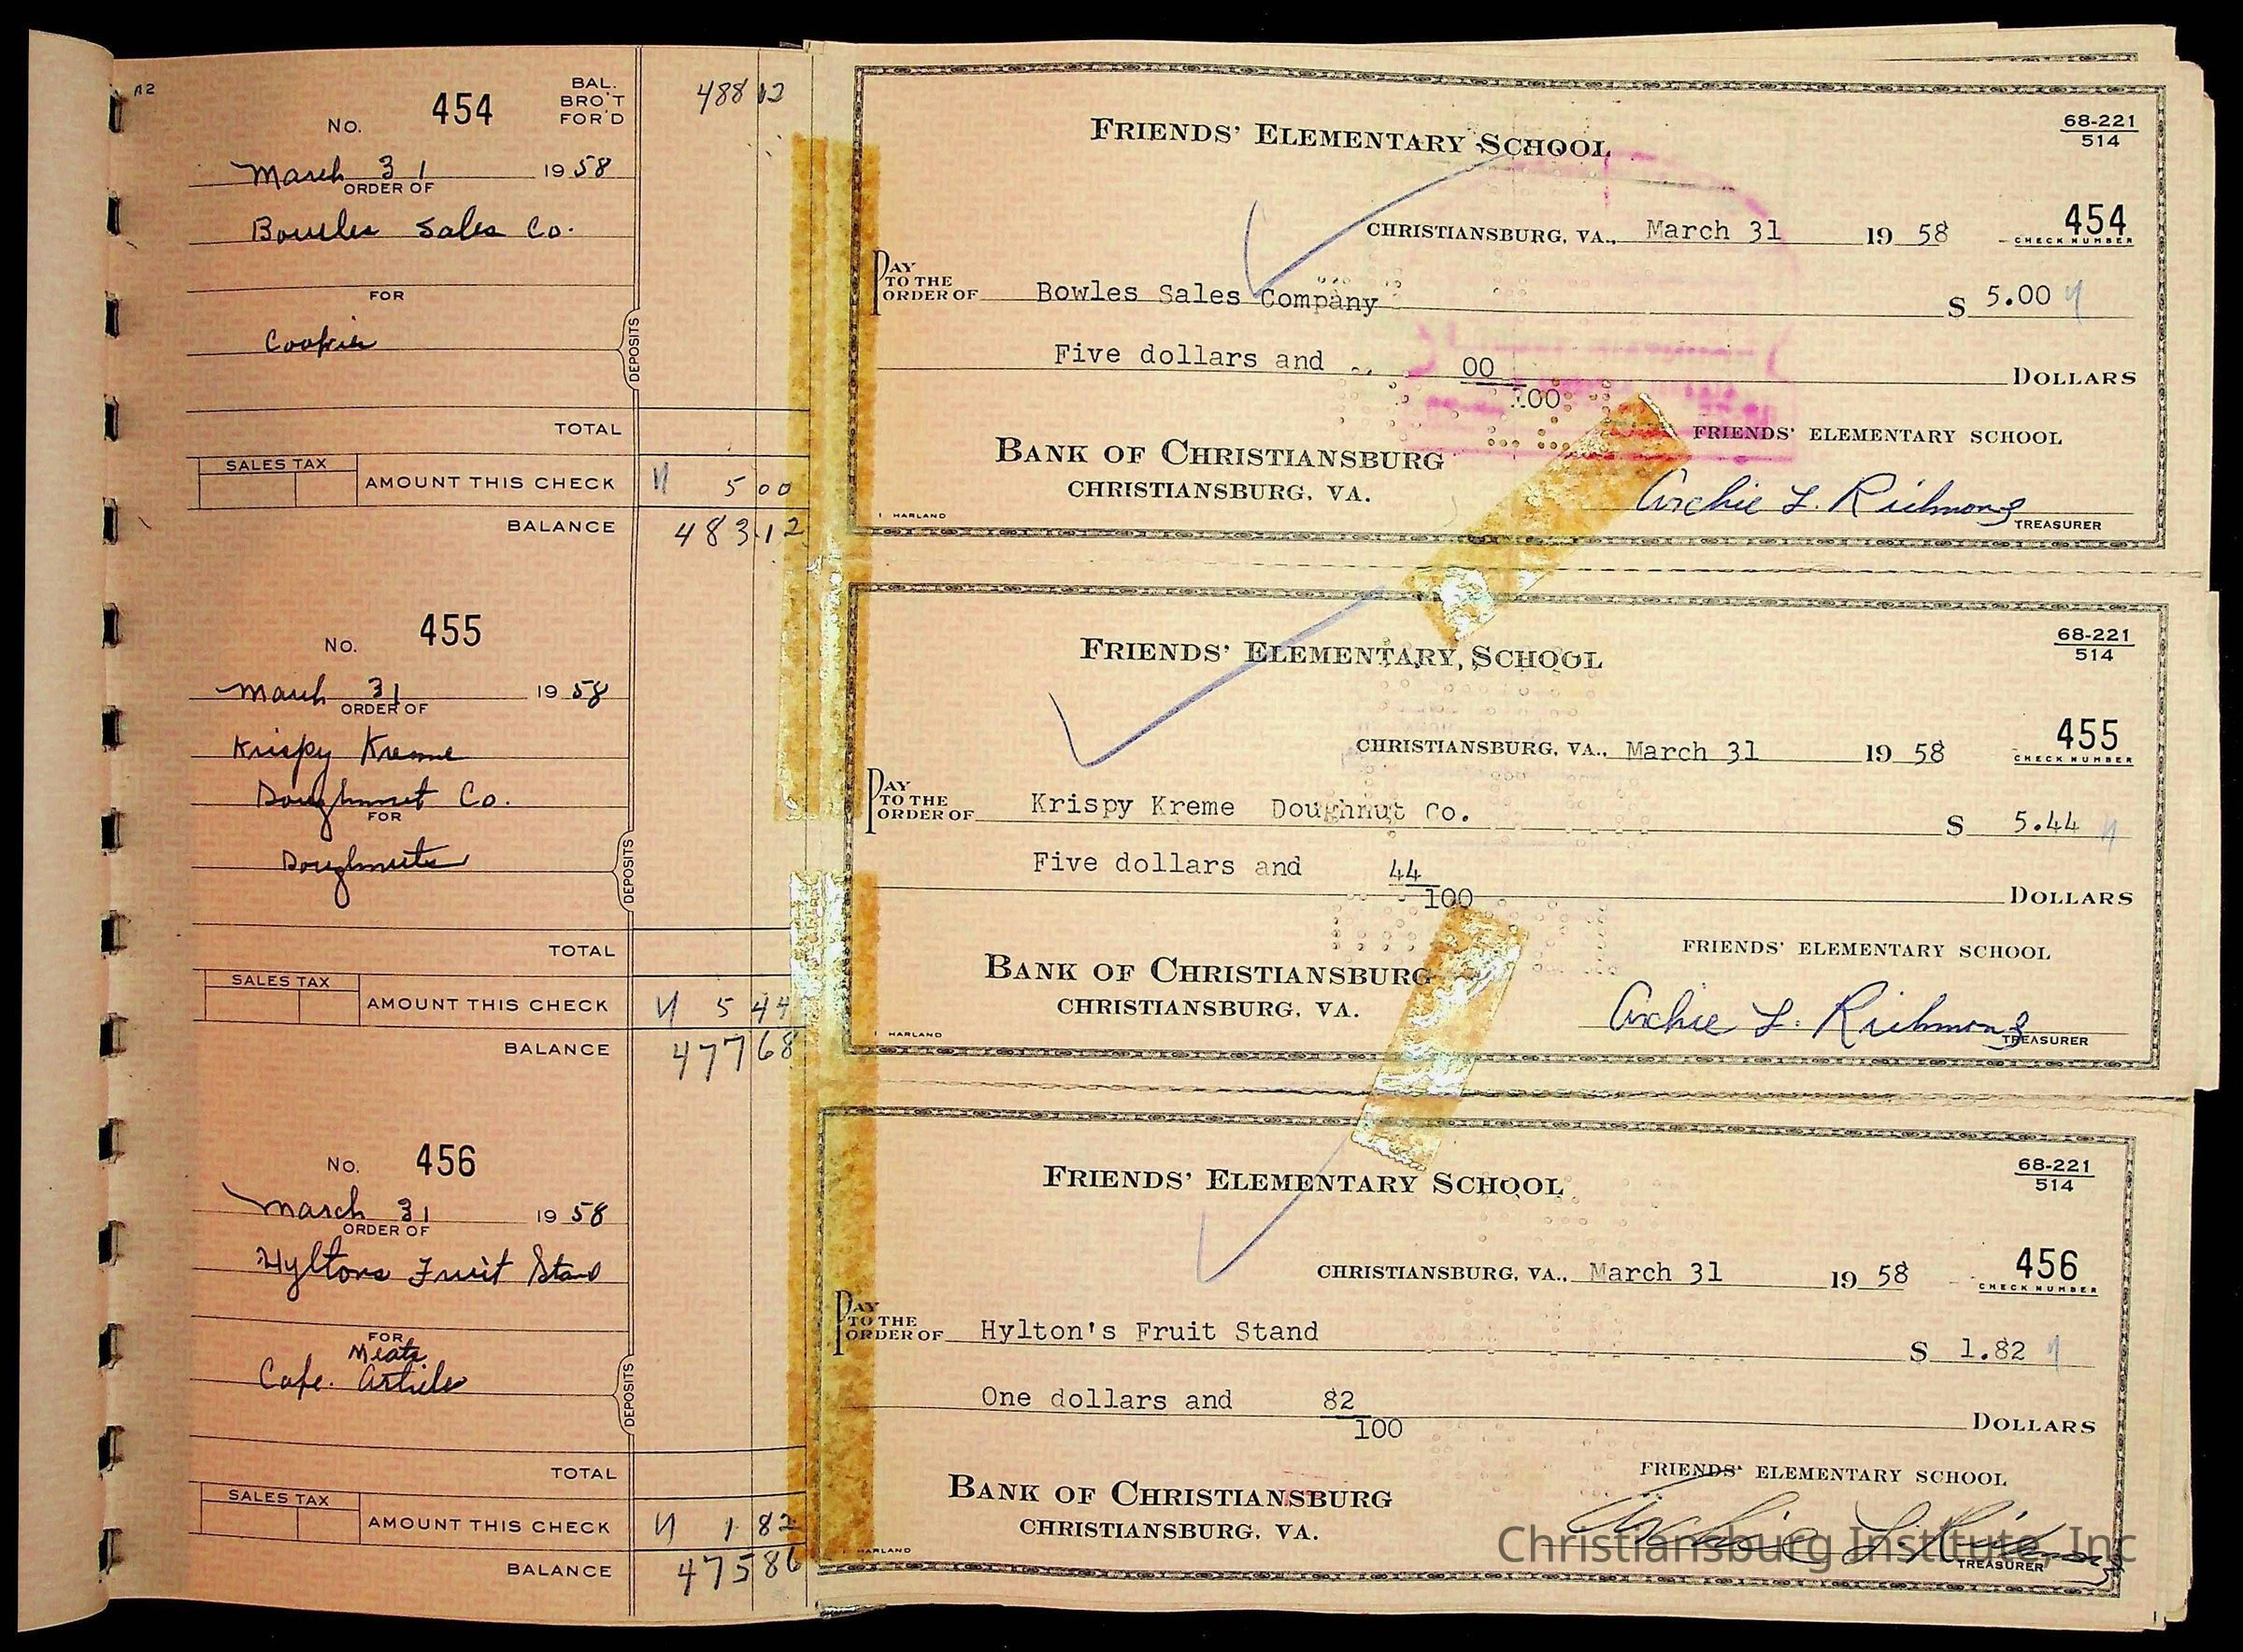 No. 454 BAL. BRO'T FOR'D 488 12
March 31 1958
ORDER OF
Bowles Sales Co.
FOR
Cookies
DEPOSITS
TOTAL
SALES TAX AMOUNT THIS CHECK 5 00
BALANCE 483.12
No. 455
March 31 1958
ORDER OF
Krispy Kreme
Doughnut Co.
FOR
Doughnuts
DEPOSITS
TOTAL
SALES TAX AMOUNT THIS CHECK 5 44
BALANCE 477 68
No. 456
March 31 1958
ORDER OF
Hyltons Fruit Stand
FOR
Meats
Cafe. Articles
DEPOSITS
TOTAL
SALES TAX AMOUNT THIS CHECK 1 82
BALANCE 475 86
FRIENDS' ELEMENTARY SCHOOL
68-221
514
CHRISTIANSBURG, VA., March 31 19 58
454
CHECK NUMBER
PAY TO THE ORDER OF Bowles Sales Company $ 5.00
Five dollars and 00/100 DOLLARS
BANK OF CHRISTIANSBURG
CHRISTIANSBURG, VA.
HARLAND
FRIENDS' ELEMENTARY SCHOOL
Archie L. Richmond
TREASURER
FRIENDS' ELEMENTARY SCHOOL
68-221
514
CHRISTIANSBURG, VA., March 31 19 58
455
CHECK NUMBER
PAY TO THE ORDER OF Krispy Kreme Doughnut Co. $ 5.44
Five dollars and 44/100 DOLLARS
BANK OF CHRISTIANSBURG
CHRISTIANSBURG, VA.
HARLAND
FRIENDS' ELEMENTARY SCHOOL
Archie L. Richmond
TREASURER
FRIENDS' ELEMENTARY SCHOOL
68-221
514
CHRISTIANSBURG, VA., March 31 19 58
456
CHECK NUMBER
PAY TO THE ORDER OF Hylton's Fruit Stand $ 1.82
One dollars and 82/100 DOLLARS
BANK OF CHRISTIANSBURG
CHRISTIANSBURG, VA.
HARLAND
FRIENDS' ELEMENTARY SCHOOL
Archie L. Richmond
TREASURER
Christiansburg Institute, Inc